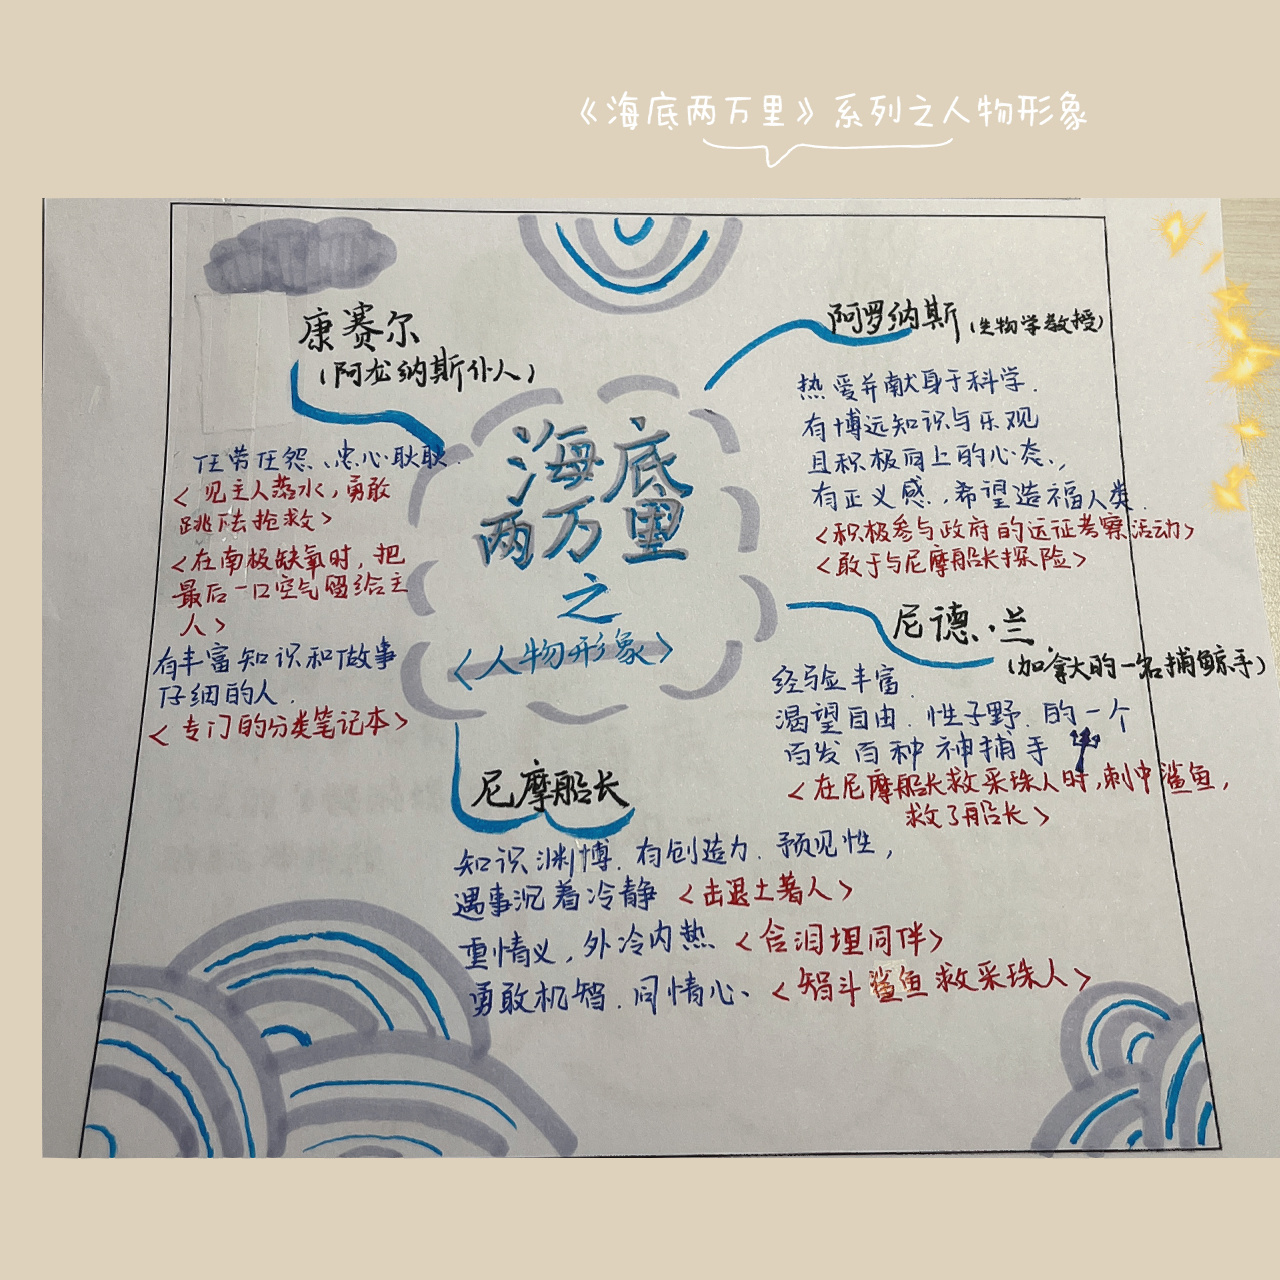 《海底两万里》系列之人物形象
康赛尔
(阿龙纳斯仆人)
任劳任怨、忠心耿耿.
<见主人落水,勇敢
跳下去抢救>
<在南极缺氧时,把
最后一口空气留给主
人>
有丰富知识和做事
仔细的人.
<专门的分类笔记本>
海底
两万里
之
<人物形象>
阿罗纳斯(生物学教授)
热爱并献身于科学.
有博远知识与乐观
且积极向上的心态,
有正义感,希望造福人类.
<积极参与政府的远征考察活动>
<敢于与尼摩船长探险>
尼德·兰
(加拿大的一名捕鲸手)
经验丰富.
渴望自由.性子野.的一个
百发百种神捕手
<在尼摩船长救采珠人时,刺中鲨鱼,
救了船长>
尼摩船长
知识渊博.有创造力.预见性,
遇事沉着冷静<击退土著人>
重情义,外冷内热<含泪埋同伴>
勇敢机智.同情心、<智斗鲨鱼救采珠人>